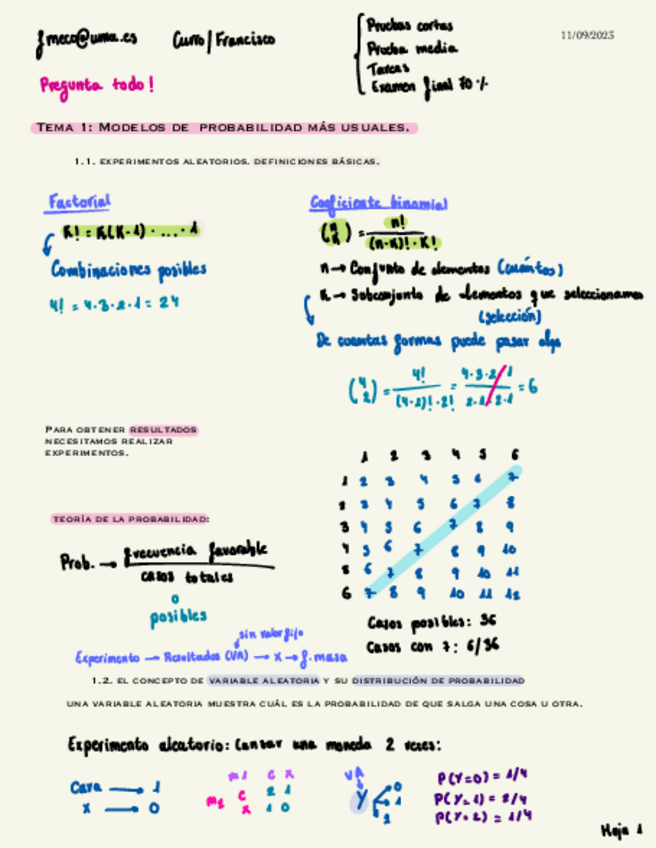 fmeco@uma.es Curro/Francisco
Pruebas cortas
Prueba media
Tareas
Examen final 70%
11/09/2023
Pregunta todo!
TEMA 1: MODELOS DE PROBABILIDAD MÁS USUALES.
1.1. EXPERIMENTOS ALEATORIOS. DEFINICIONES BÁSICAS.
Factorial
K! = K(K-1)· ... ·1
Combinaciones posibles
4! = 4·3·2·1 = 24
Coeficiente binomial
(n K) = n! / (n-K)!·K!
n → Conjunto de elementos (cuántos)
K → Subconjunto de elementos que seleccionamos
(selección)
De cuantas formas puede pasar algo
(4 2) = 4! / (4-2)!·2! = 4·3·2·1 / 2·1·2·1 = 6
PARA OBTENER RESULTADOS
NECESITAMOS REALIZAR
EXPERIMENTOS.
TEORÍA DE LA PROBABILIDAD:
Prob. → frecuencia favorable
casos totales
o
posibles
1 2 3 4 5 6
1 2 3 4 5 6 7
2 3 4 5 6 7 8
3 4 5 6 7 8 9
4 5 6 7 8 9 10
5 6 7 8 9 10 11
6 7 8 9 10 11 12
Casos posibles: 36
Casos con 7: 6/36
sin valor fijo
Experimento → Resultados (VA) → x → f. masa
1.2. EL CONCEPTO DE VARIABLE ALEATORIA Y SU DISTRIBUCIÓN DE PROBABILIDAD
UNA VARIABLE ALEATORIA MUESTRA CUÁL ES LA PROBABILIDAD DE QUE SALGA UNA COSA U OTRA.
Experimento aleatorio: Lanzar una moneda 2 veces:
Cara → 1
X → 0
m1 C X
m2 C 2 1
X 1 0
VA
Y 0
1
2
P(Y=0) = 1/4
P(Y=1) = 2/4
P(Y=2) = 1/4
Hoja 1